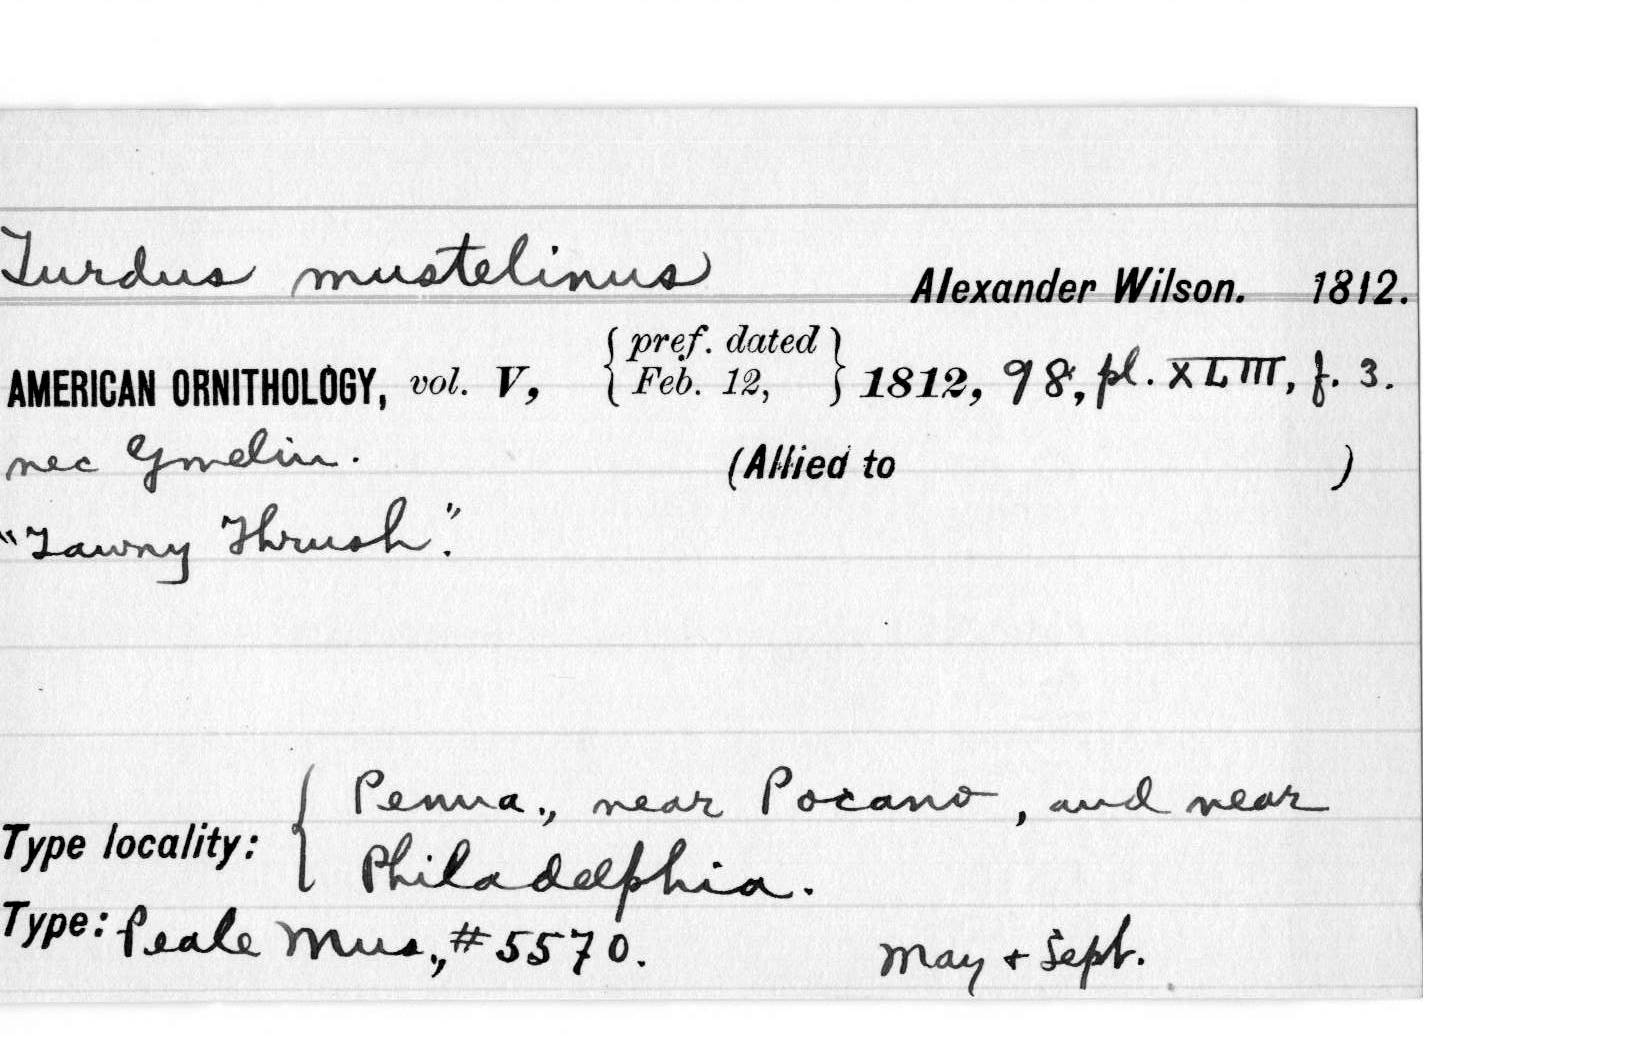 Turdus mustelinus Alexander Wilson. 1812.
AMERICAN ORNITHOLOGY, vol. V, { pref. dated Feb. 12, } 1812, 98, pl. XLIII, f. 3.
nec Gmelin. (Allied to )
"Tawny Thrush".
Type locality: { Penna., near Pocano, and near
Philadelphia.
Type: Peale Mus., #5570. May + Sept.